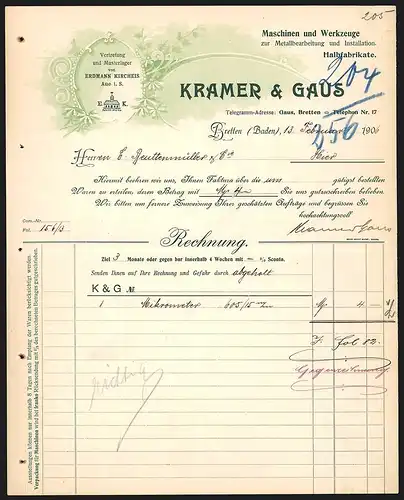 205
Maschinen und Werkzeuge
zur Metallbearbeitung und Installation.
Halbfabrikate.
Vertretung
und Musterlager
von
ERDMANN KIRCHEIS
Aue i. S.
E. K.
204
KRAMER & GAUS
Telegramm-Adresse: Gaus, Bretten Telephon Nr. 17
250
Bretten (Baden), 13. Februar 1906
Herren E. Beuttenmüller & Co
Hier
Hiermit beehren wir uns, Ihnen Faktura über die uns gütigst bestellten
Waren zu erteilen, deren Betrag mit Sie uns gutzuschreiben belieben.
Wir bitten um fernere Zuweisung Ihrer geschätzten Aufträge und begrüssen Sie
hochachtungsvoll
Kramer & Gaus
Fol. 156/3
Rechnung.
Ziel 3 Monate oder gegen bar innerhalb 4 Wochen mit — % Sconto.
Senden Ihnen auf Ihre Rechnung und Gefahr durch abgeholt
K & G №
1 Mikrometer 605/15 M 4 —
Fol 12.
richtig
Ausstellungen können nur innerhalb 8 Tagen nach Empfang der Waren berücksichtigt werden.
Verpackung für Maschinen wird bei franko Rücksendung mit ⅔ des berechneten Betrages gutgeschrieben.